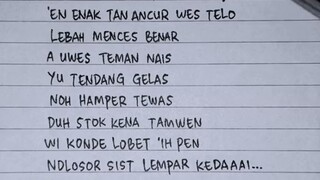 'EN ENAK TAN ANCUR WES TELO
LEBAH MENCES BENAR
A UWES TEMAN NAIS
YU TENDANG GELAS
NOH HAMPER TEWAS
DUH STOK KENA TAMWEN
WI KONDE LOBET 'IH PEN
NDLOSOR SIST LEMPAR KEDAAAI...